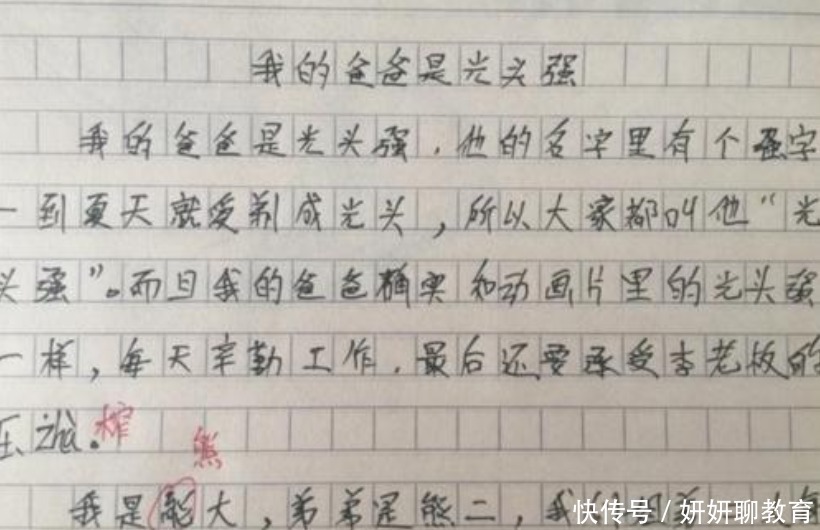 我的爸爸是光头强
我的爸爸是光头强,他的名字里有个强字
一到夏天就爱剃成光头,所以大家都叫他“光
头强”。而且我的爸爸确实和动画片里的光头强
一样,每天辛勤工作,最后还要承受李老板的
压zhà。榨
熊
我是熊大,弟弟是熊二,我
快传号/妍妍聊教育